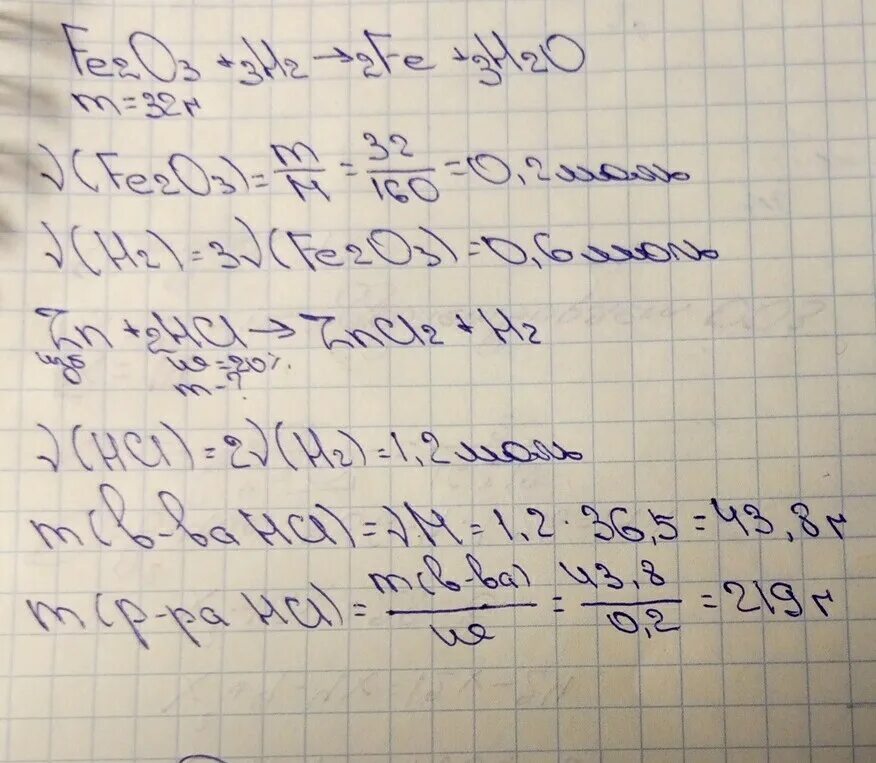 Fe2O3 + 3H2 → 2Fe + 3H2O
m = 32г
ν(Fe2O3) = m/M = 32/160 = 0,2 моль
ν(H2) = 3ν(Fe2O3) = 0,6 моль
Zn + 2HCl → ZnCl2 + H2
изб ω = 20%
m - ?
ν(HCl) = 2ν(H2) = 1,2 моль
m(в-ва HCl) = νM = 1,2 · 36,5 = 43,8г
m(р-ра HCl) = m(в-ва)/ω = 43,8/0,2 = 219г